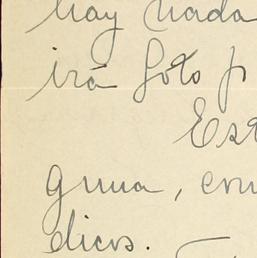 hay nada
irá foto p
Est
guna, con
dicos.